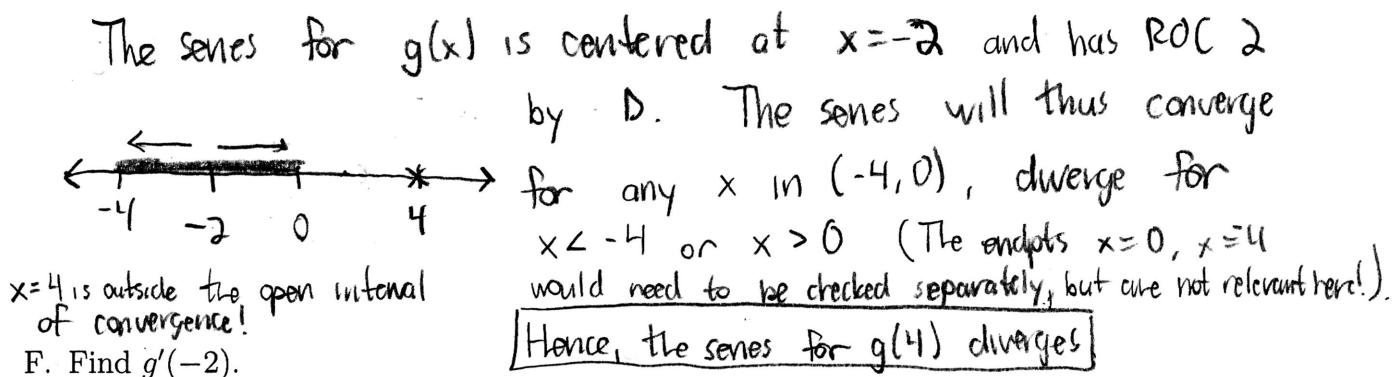 The series for g(x) is centered at x=-2 and has ROC 2
by D. The series will thus converge
for any x in (-4,0), diverge for
x < -4 or x > 0 (The endpts x=0, x=-4
would need to be checked separately, but are not relevant here!).
Hence, the series for g(4) diverges
-4 -2 0 4
x=4 is outside the open interval
of convergence!
F. Find g'(-2).